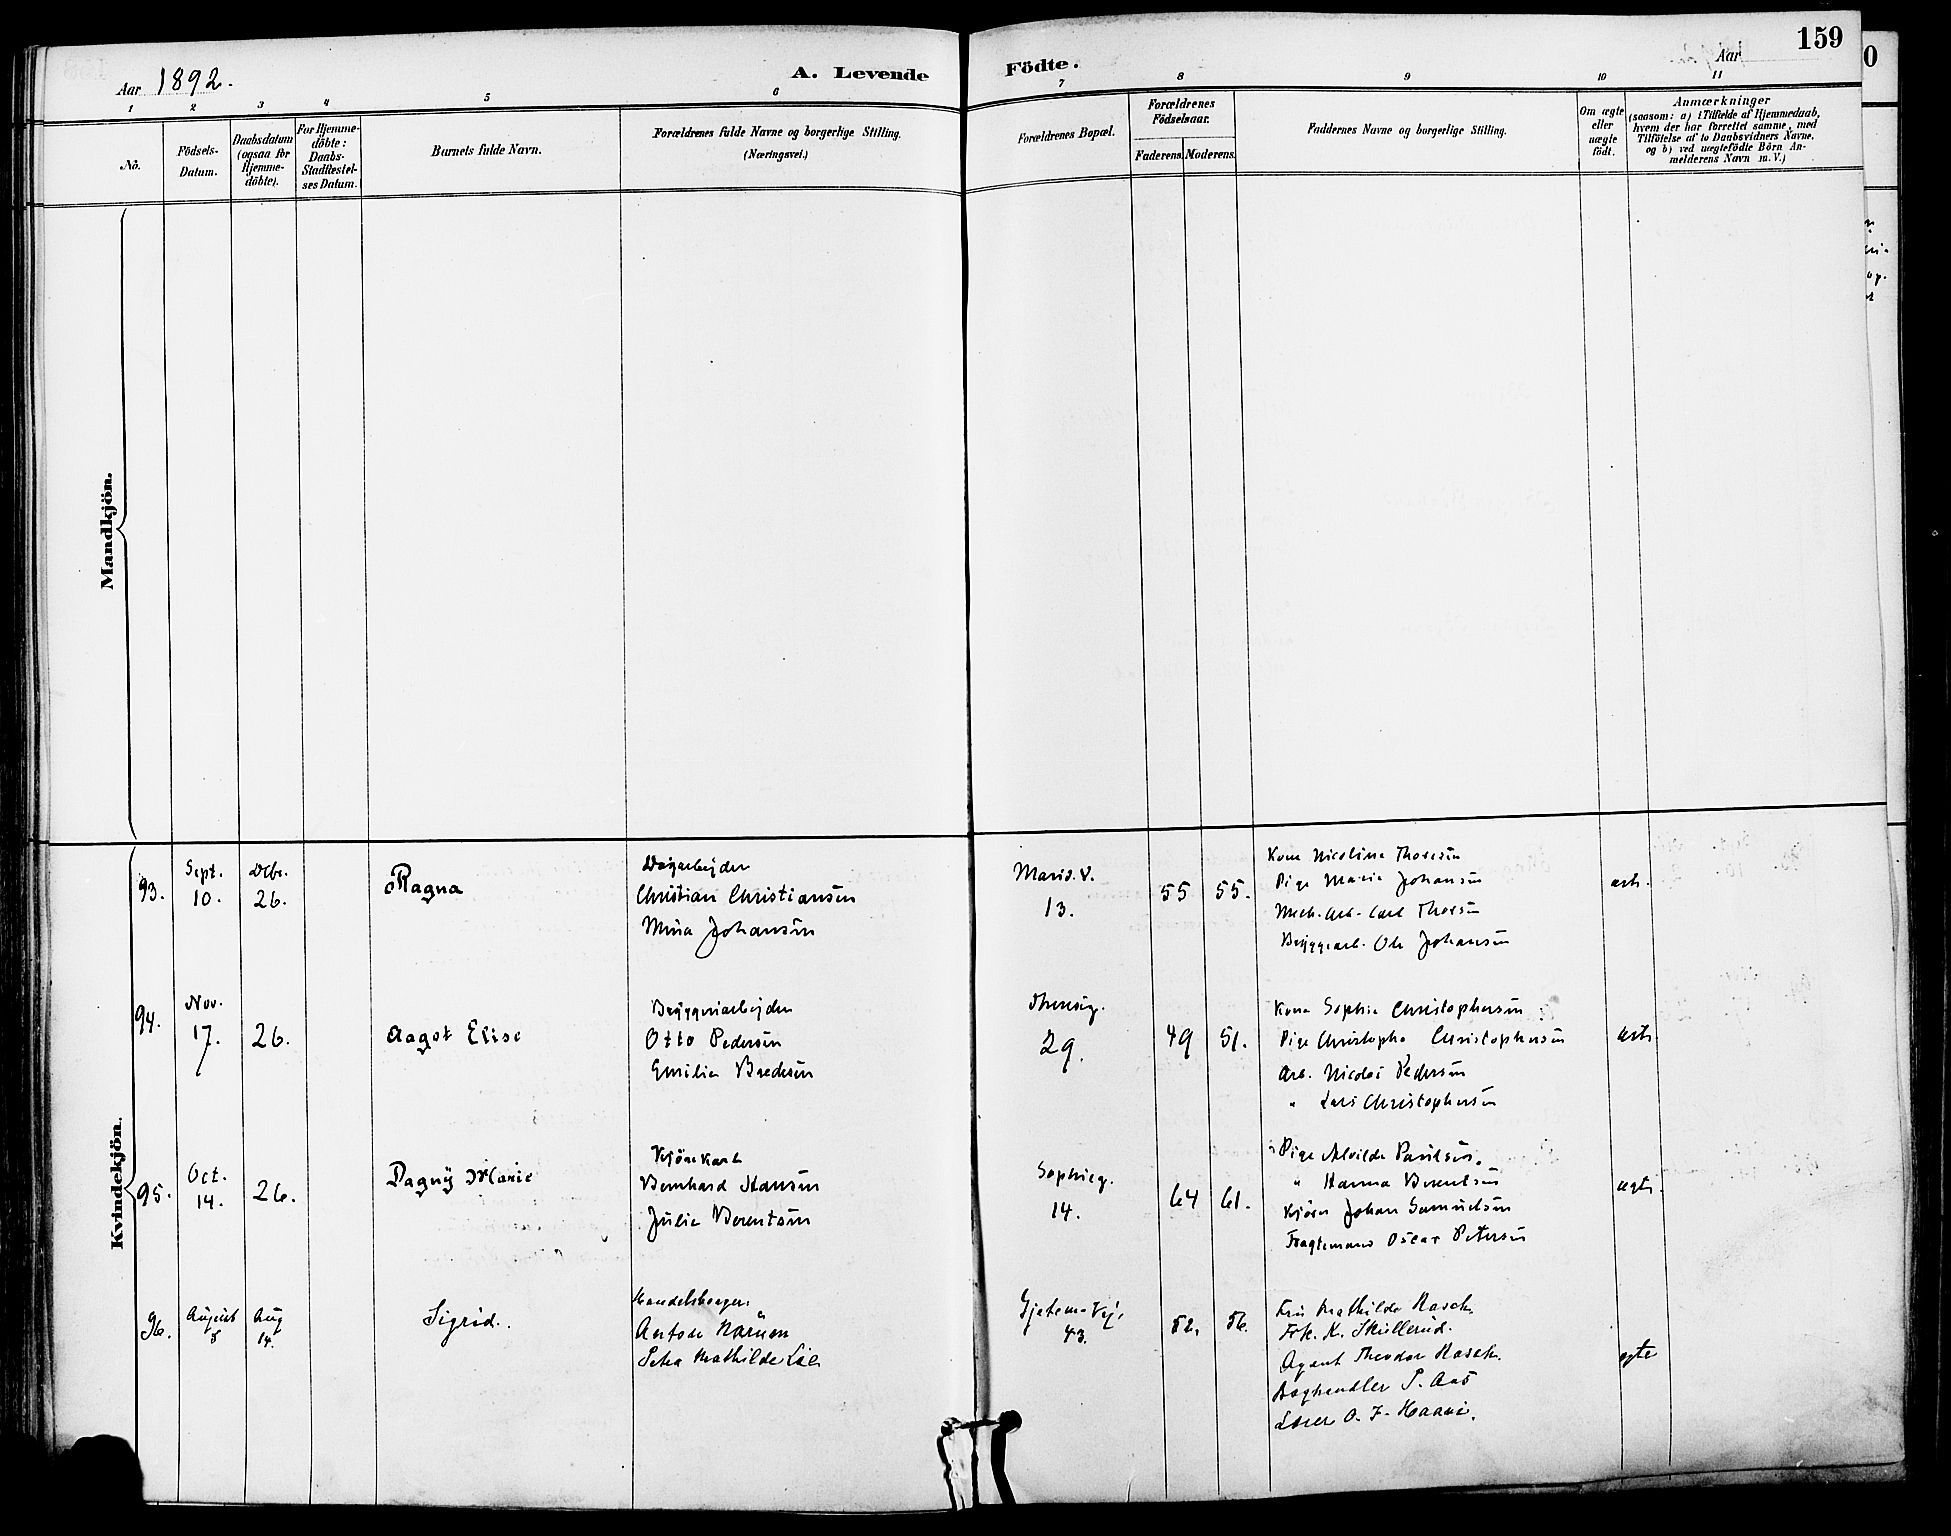 Aar 1892.
A. Levende
Födte.
Aar
159
1
2
3
4
5
6
7
8
9
10
11
No.
Födsels-
Datum.
Daabsdatum
(ogsaa for
Hjemme-
döbte).
For Hjemme-
döbte:
Daabs-
Stadfæstel-
ses Datum.
Barnets fulde Navn.
Forældrenes fulde Navne og borgerlige Stilling.
(Næringsvei.)
Forældrenes Bopæl.
Forældrenes
Födselsaar.
Faderens.
Moderens.
Faddernes Navne og borgerlige Stilling.
Om ægte
eller
uægte
födt.
Anmærkninger
(saasom: a) i Tilfælde af Hjemmedaab,
hvem der har forrettet samme, med
Tilföielse af to Daabsvidners Navne,
og b) ved uægtefödte Börn An-
melderens Navn m. V.)
Mandkjön.
Kvindekjön.
93.
Sept.
10.
Dcbr.
26.
Ragna
Christian Christiansen
Mina Johansen
Marid. V.
13.
55
55.
Kone Nicoline Thoresen
Pige Marie Johansen
Mek. Arb. Carl Thoresen
Bryggearb. Ole Johansen
94.
Nov.
17.
26.
Aagot Elise
Bryggeriarbejder
Otto Pedersen
Emilie Bredesen
Thereseg.
29.
49
51.
Kone Sophie Christophersen
Pige Christopha Christophersen
Arb. Nicolai Pedersen
" Lars Christophersen
95.
Oct.
14.
26.
Dagny Marie
Kjörekarl
Bernhard Hansen
Julie Berentsen
Sophieg.
14.
64
61.
Pige Alvilde Paulsen.
" Hanna Berentsen
Kjörer Johan Samuelsen
Fragtemand Oscar Petersen
ægte
96.
August
8
Aug
14.
Sigrid.
Handelsborger
Anton
Petra Mathilde Lie
43.
52.
56.
Fru Mathilde Rasch.
Frk. K. Skullerud.
Agent Theodor Rasch.
Boghandler P. Aas
Lærer O. J.
ægte